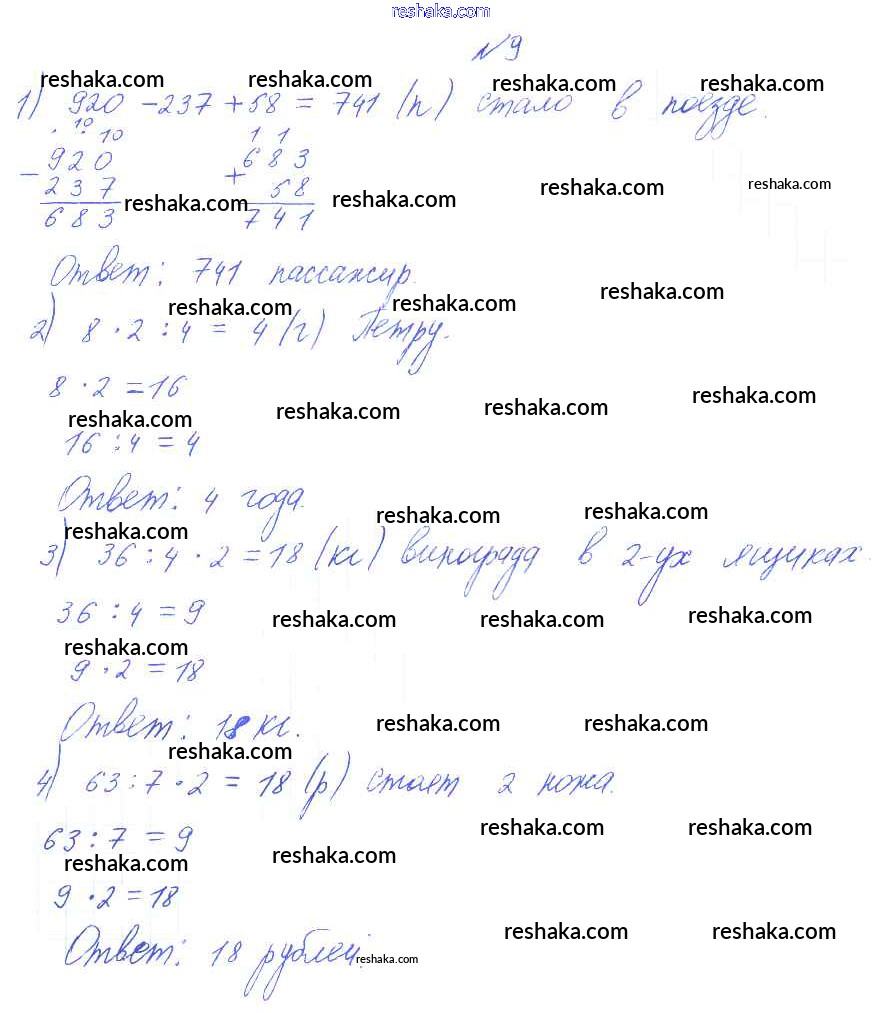 reshaka.com
№9
1) 920 - 237 + 58 = 741 (п) стало в поезде.
10 10 1 1
- 920 + 683
237 58
683 741
Ответ: 741 пассажир.
2) 8 · 2 : 4 = 4 (г) Петру.
8 · 2 = 16
16 : 4 = 4
Ответ: 4 года.
3) 36 : 4 · 2 = 18 (кг) винограда в 2-ух ящиках.
36 : 4 = 9
9 · 2 = 18
Ответ: 18 кг.
4) 63 : 7 · 2 = 18 (р) стоят 2 ножа.
63 : 7 = 9
9 · 2 = 18
Ответ: 18 рублей.
reshaka.com reshaka.com reshaka.com reshaka.com
reshaka.com reshaka.com reshaka.com reshaka.com
reshaka.com reshaka.com reshaka.com
reshaka.com reshaka.com reshaka.com reshaka.com
reshaka.com reshaka.com reshaka.com
reshaka.com reshaka.com reshaka.com reshaka.com
reshaka.com reshaka.com reshaka.com
reshaka.com reshaka.com reshaka.com reshaka.com
reshaka.com reshaka.com reshaka.com